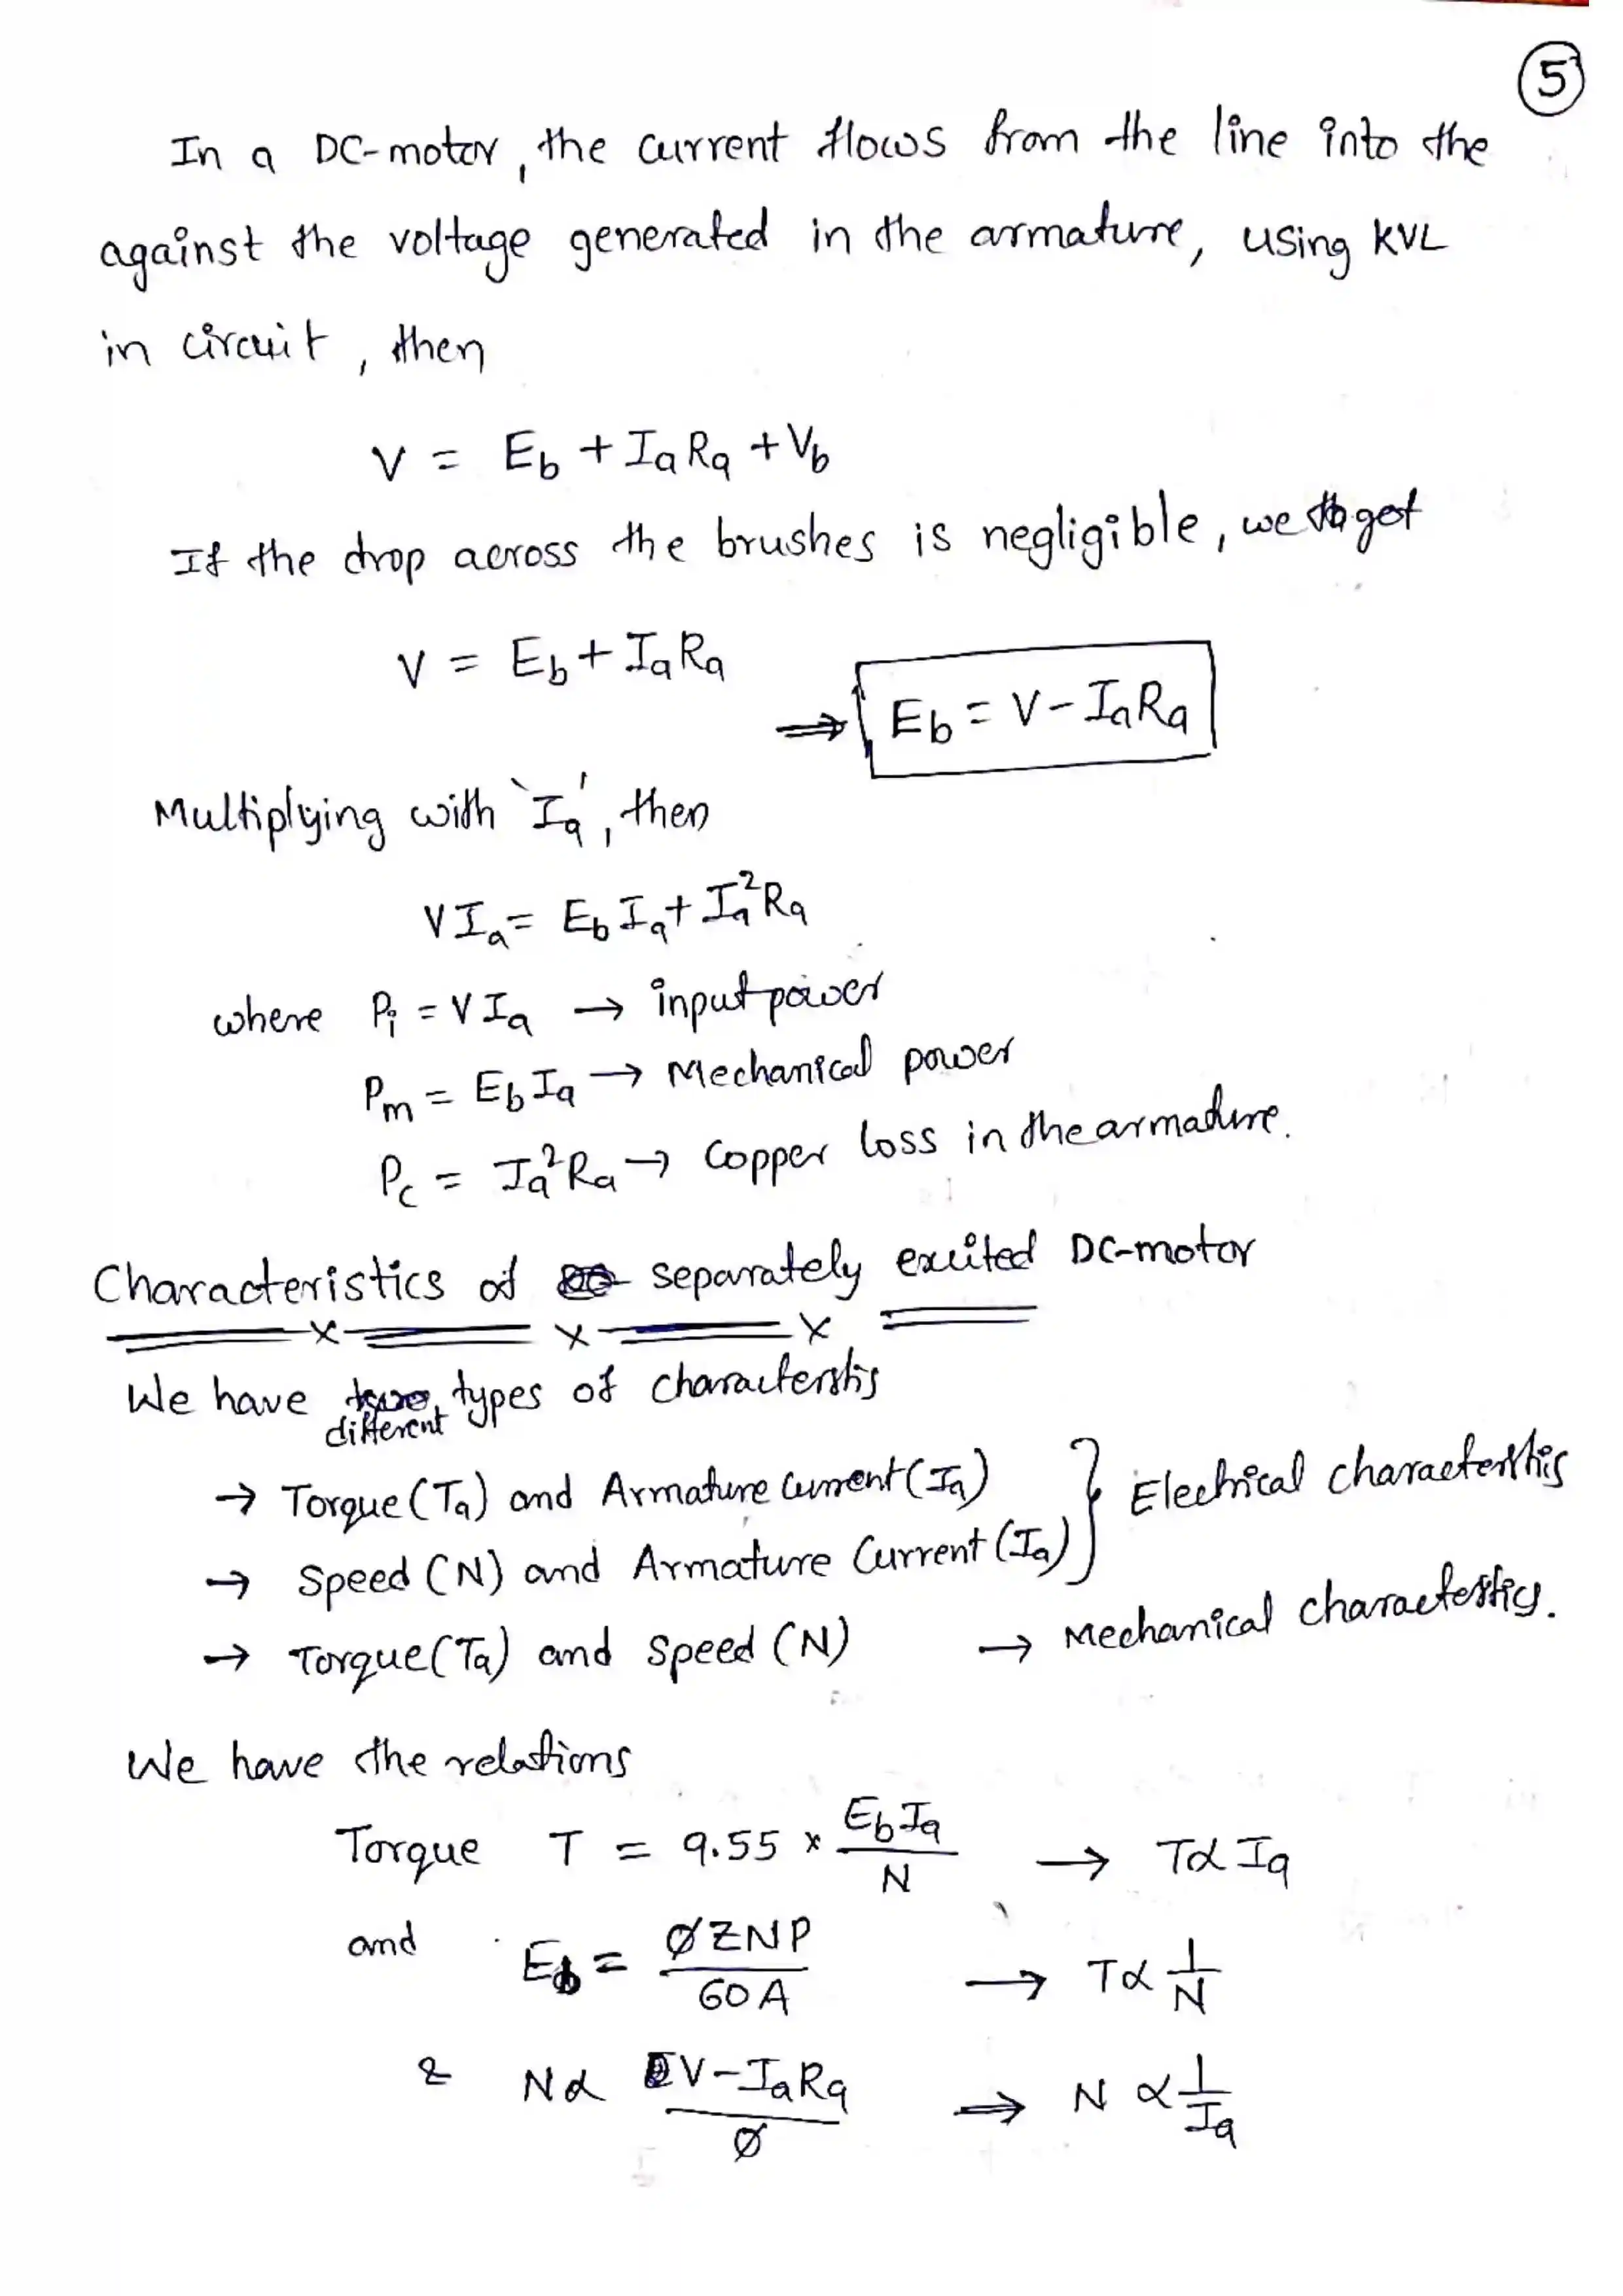 5
In a DC-motor, the current flows from the line into the
against the voltage generated in the armature, using KVL
in circuit, then
V = Eb + IaRa + Vb
If the drop across the brushes is negligible, we get
V = Eb + IaRa
⇒ Eb = V - IaRa
Multiplying with 'Ia', then
VIa = EbIa + Ia²Ra
where Pi = VIa → input power
Pm = EbIa → Mechanical power
Pc = Ia²Ra → Copper loss in the armature.
Characteristics of separately excited DC-motor
We have different types of characterstis
→ Torque (Ta) and Armature Current (Ia)
→ Speed (N) and Armature Current (Ia) } Electrical characterstis
→ Torque (Ta) and Speed (N) → Mechanical characterstics.
We have the relations
Torque T = 9.55 × EbIa/N → T∝Ia
and Eb = ØZNP/60A → T∝1/N
& N∝ V-IaRa/Ø → N∝1/Ia